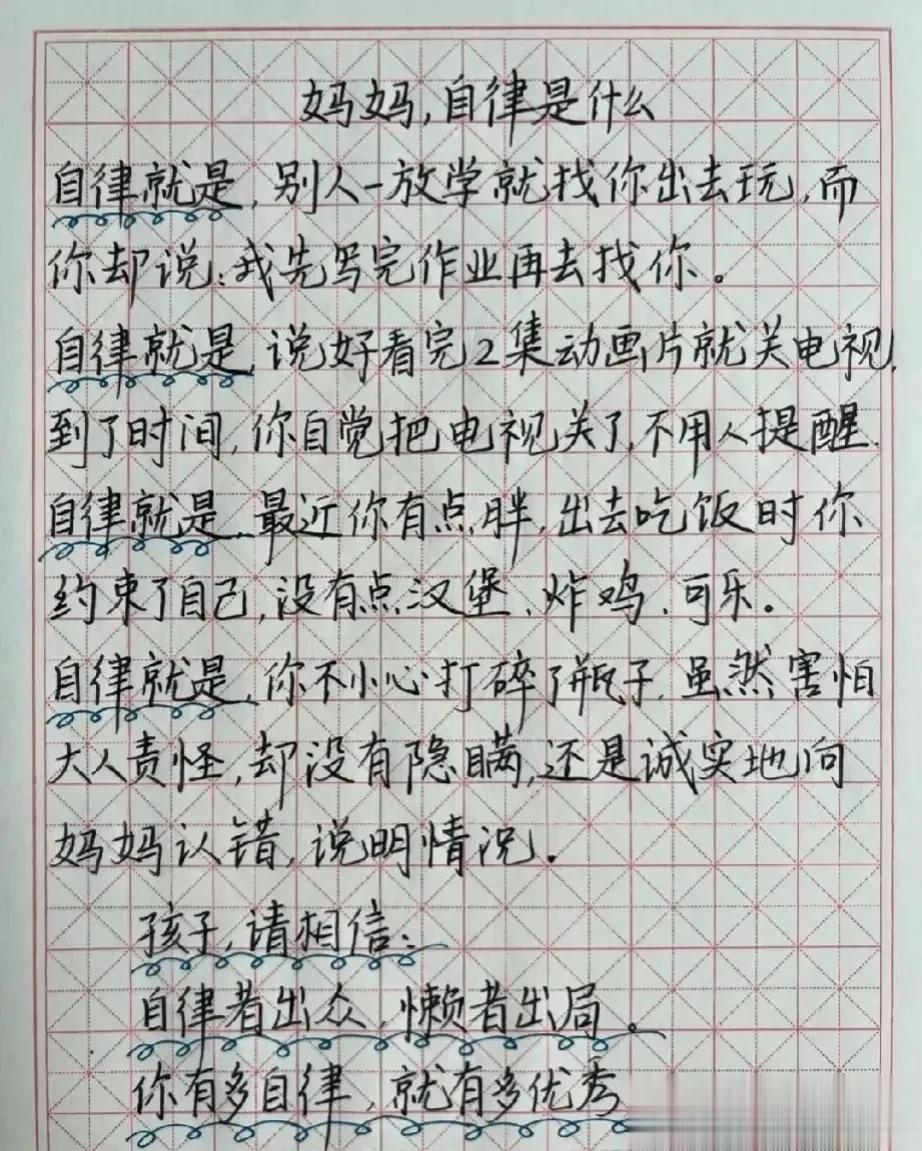 妈妈,自律是什么
自律就是,别人一放学就找你出去玩,而
你却说:我先写完作业再去找你。
自律就是,说好看完2集动画片就关电视,
到了时间,你自觉把电视关了,不用人提醒.
自律就是,最近你有点胖,出去吃饭时你
约束了自己,没有点汉堡、炸鸡、可乐。
自律就是,你不小心打碎了瓶子,虽然害怕
大人责怪,却没有隐瞒,还是诚实地向
妈妈认错,说明情况.
孩子,请相信:
自律者出众,懒者出局。
你有多自律,就有多优秀